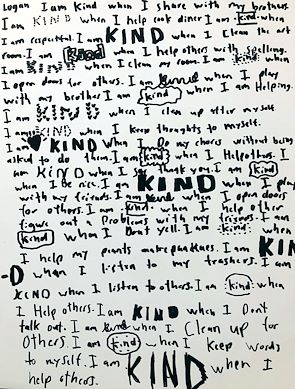 Logan I am kind when I share with my brothers.
I am KIND when I help cook diner. I am kind when
I am respectful. I am KIND when I clean the art
room. I am kind when I help others with spelling.
I am KIND when I clean my room. I am kind when
I open doors for others. I am kind when I play
with my brother. I am kind when I am Helping.
I am KIND when I clen up after myself.
I am KIND when I keep thoughts to myself.
I am KIND when I Do my chores without being
asked to do them. I am kind when I Help others. I
am KIND when I say thank you. I am kind
when I be nice. I am KIND when I play
with my friends. I am kind when I open doors
for others. I am kind when I help other
figure out a Problems with my friends. I am
kind when I Don't yell. I am kind when
I help my parents make pancakes. I am KIN
-D when I listen to my teashers. I am
KIND when I listen to others. I am kind when
I Help others. I am KIND when I Don't
talk out. I am kind when I Clean up for
Others. I am kind when I keep words
to myself. I am KIND when I
help others.